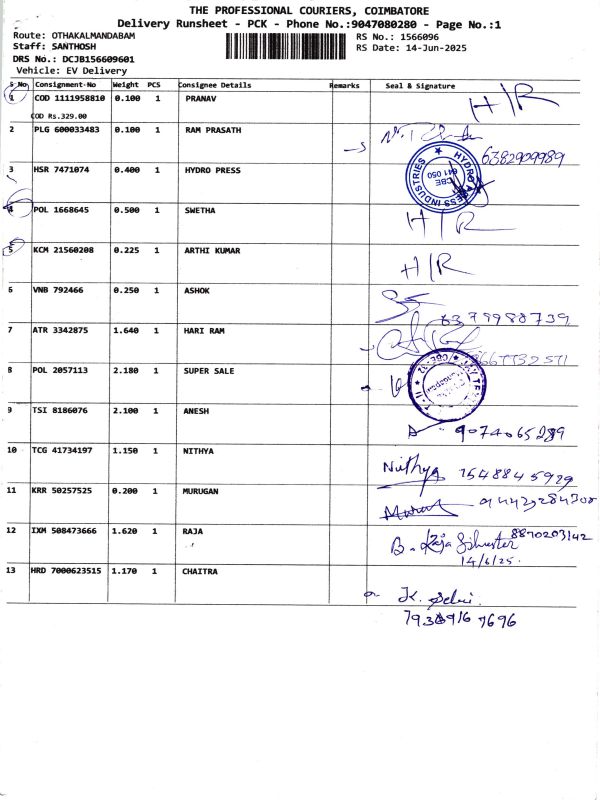 THE PROFESSIONAL COURIERS, COIMBATORE
Delivery Runsheet - PCK - Phone No.:9047080280 - Page No.:1
Route: OTHAKALMANDABAM
RS No.: 1566096
Staff: SANTHOSH
RS Date: 14-Jun-2025
DRS No.: DCJB156609601
Vehicle: EV Delivery
S No Consignment-No Weight PCS Consignee Details Remarks Seal & Signature
1 COD 1111958810 0.100 1 PRANAV H/R
COD Rs.329.00
2 PLG 600033483 0.100 1 RAM PRASATH
6382909989
3 HSR 7471074 0.400 1 HYDRO PRESS
HYDRO PRESS INDUSTRIES CBE 641 050
4 POL 1668645 0.500 1 SWETHA H/R
5 KCM 21560208 0.225 1 ARTHI KUMAR H/R
6 VNB 792466 0.250 1 ASHOK
6379988739
7 ATR 3342875 1.640 1 HARI RAM
8 POL 2057113 2.180 1 SUPER SALE
9 TSI 8186076 2.100 1 ANESH
9074065289
10 TCG 41734197 1.150 1 NITHYA Nithya 7548845929
11 KRR 50257525 0.200 1 MURUGAN
12 IXM 508473666 1.620 1 RAJA B. Raja 8870203142
14/6/25.
13 HRD 7000623515 1.170 1 CHAITRA
K. Selvi.